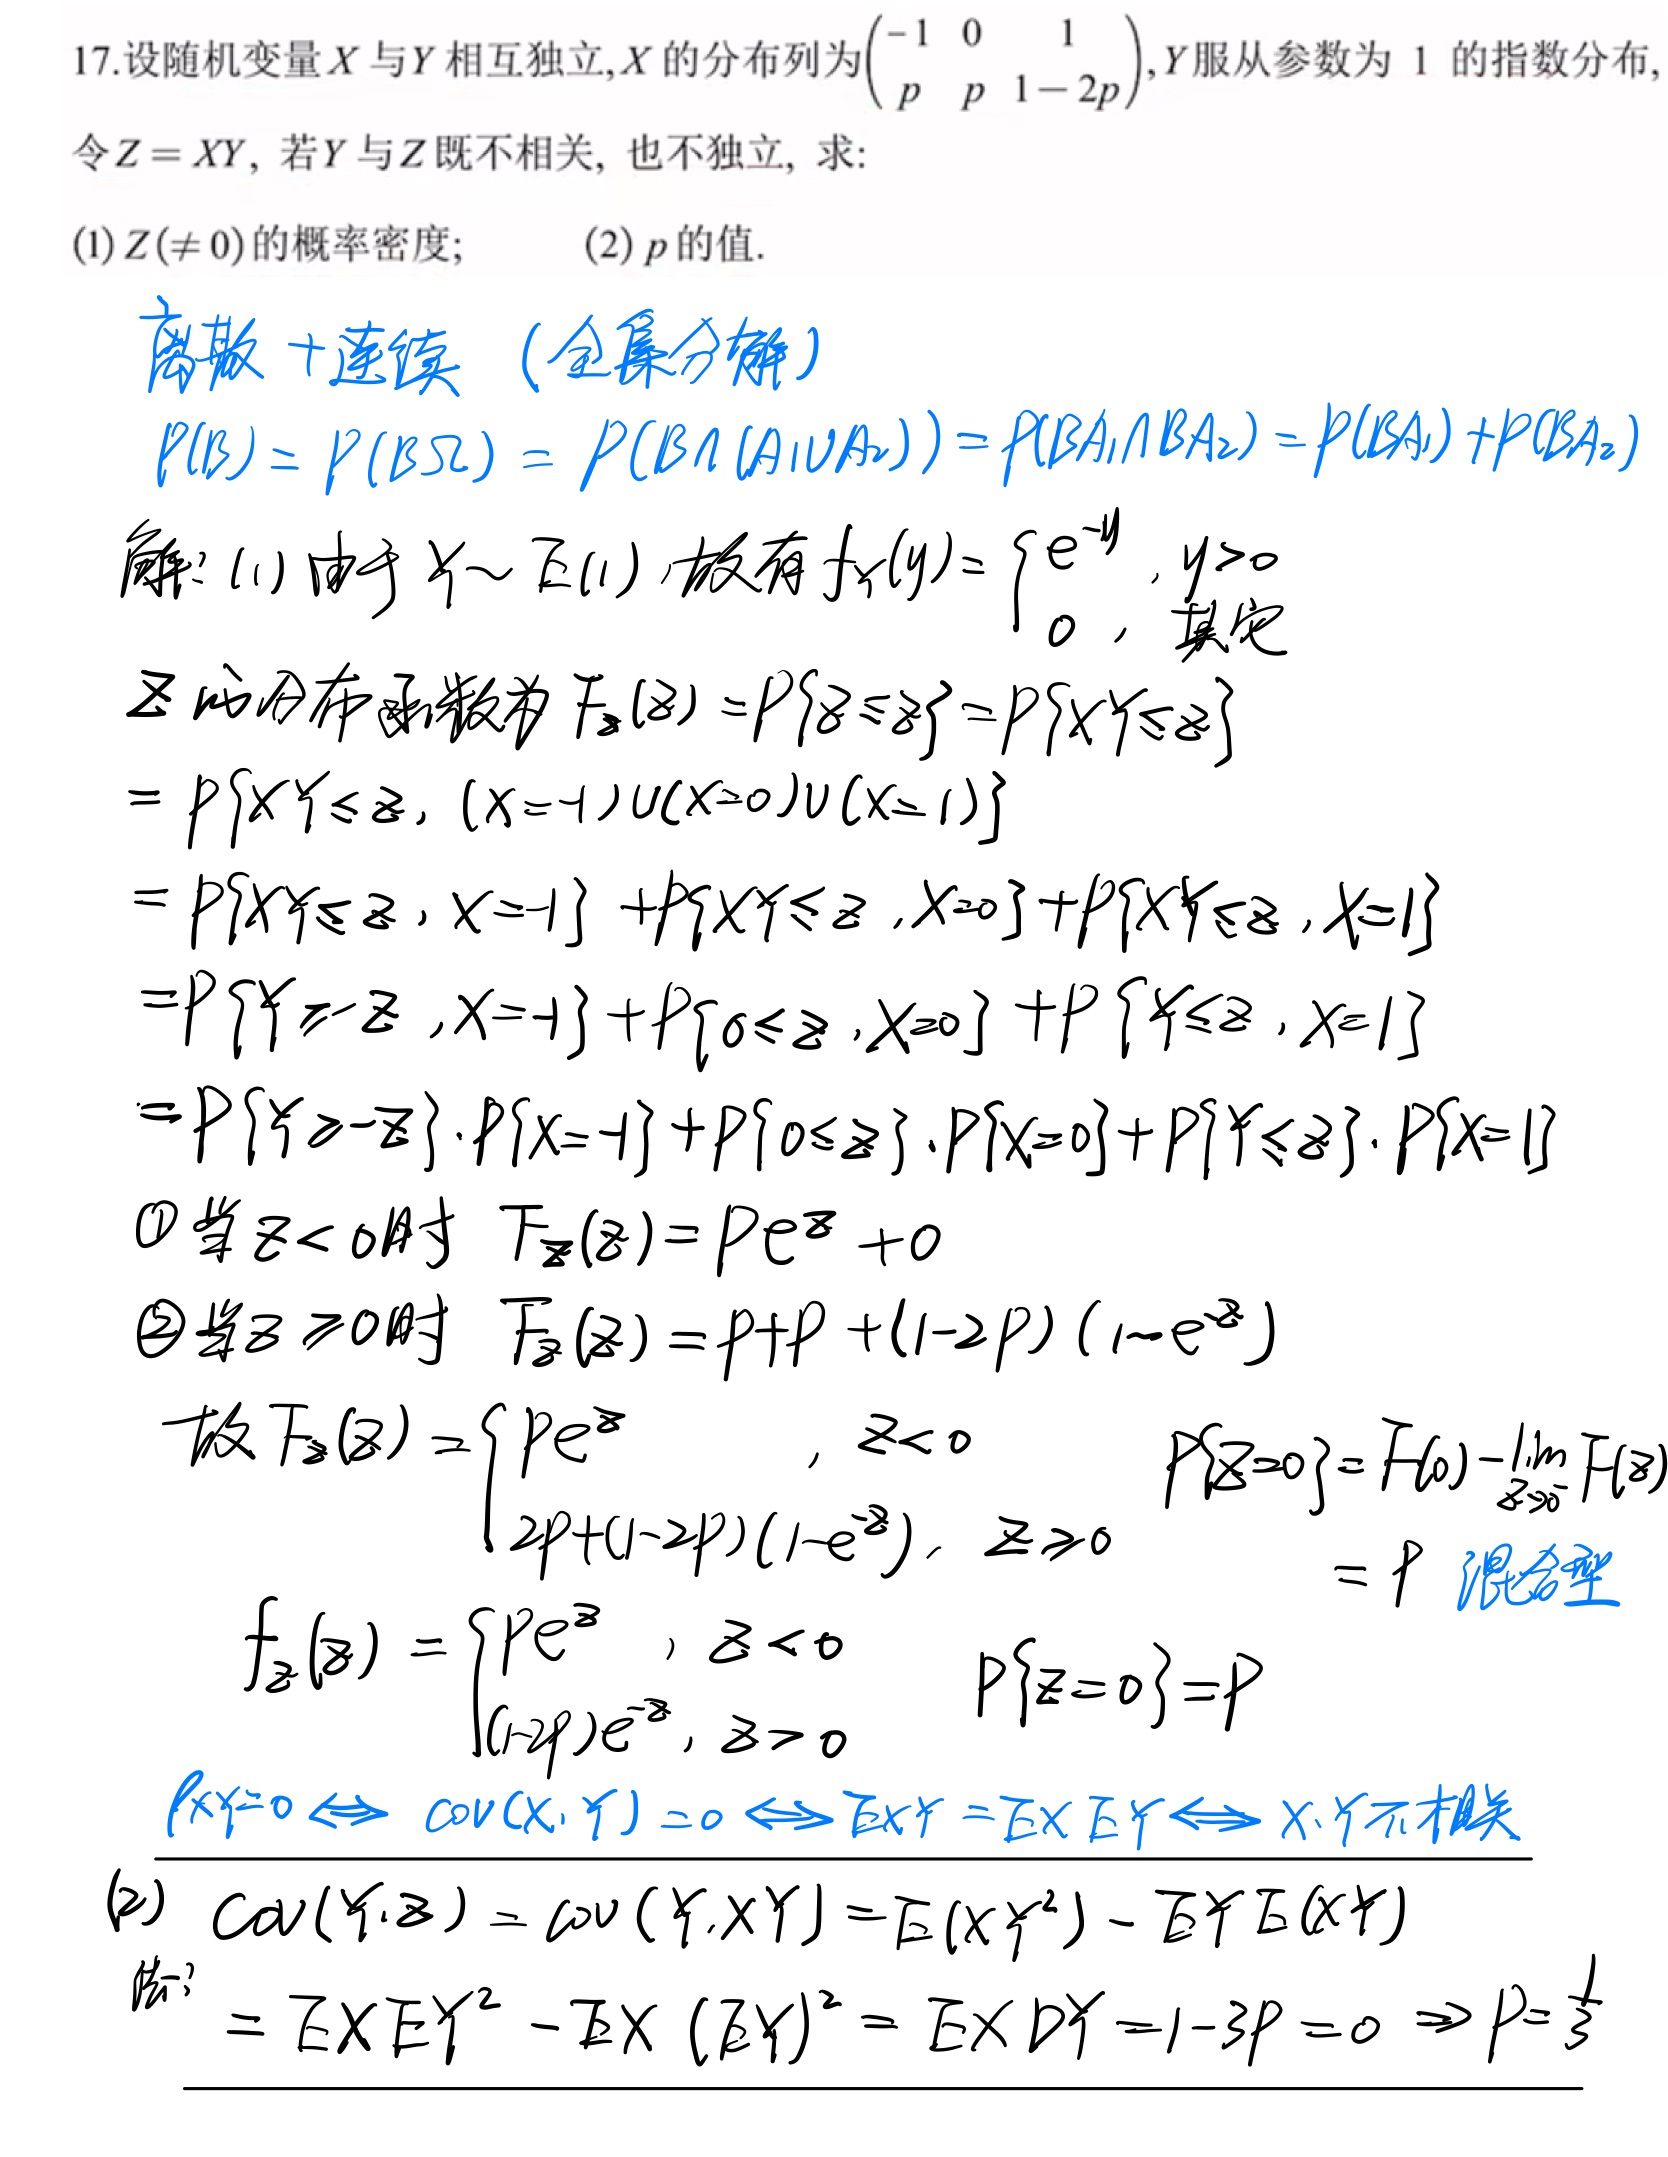 17.设随机变量X与Y相互独立,X的分布列为(-1 0 1 / p p 1-2p),Y服从参数为 1 的指数分布,
令Z = XY, 若Y与Z既不相关, 也不独立, 求:
(1) Z(≠0)的概率密度; (2) p的值.
离散+连续 (全集分解)
P(B) = P(BΩ) = P(B∩(A₁∪A₂)) = P(BA₁∩BA₂) = P(BA₁)+P(BA₂)
解:(1) 由于Y~E(1),故有 f_Y(y) = { e^{-y}, y>0
0, 其它
Z的分布函数为 F_Z(z) = P{Z≤z} = P{XY≤z}
= P{XY≤z, (X=-1)∪(X=0)∪(X=1)}
= P{XY≤z, X=-1} + P{XY≤z, X=0} + P{XY≤z, X=1}
= P{Y≥-z, X=-1} + P{0≤z, X=0} + P{Y≤z, X=1}
= P{Y≥-z}·P{X=-1} + P{0≤z}·P{X=0} + P{Y≤z}·P{X=1}
①当z<0时 F_Z(z) = pe^z + 0
②当z≥0时 F_Z(z) = p+p+(1-2p)(1-e^{-z})
故F_Z(z) = { pe^z, z<0
2p+(1-2p)(1-e^{-z}), z≥0
P{Z=0} = F(0) - lim_{z→0⁻} F(z)
= p 混合型
f_Z(z) = { pe^z, z<0
(1-2p)e^{-z}, z>0
P{Z=0} = p
ρ_{XY}=0 ⇔ cov(X,Y)=0 ⇔ EXY=EXEY ⇔ X、Y不相关
(2) Cov(Y,Z) = cov(Y,XY) = E(XY²) - EYE(XY)
法一:
= EXEY² - EX(EY)² = EXDY = 1-3p = 0 ⇒ p = 1/3